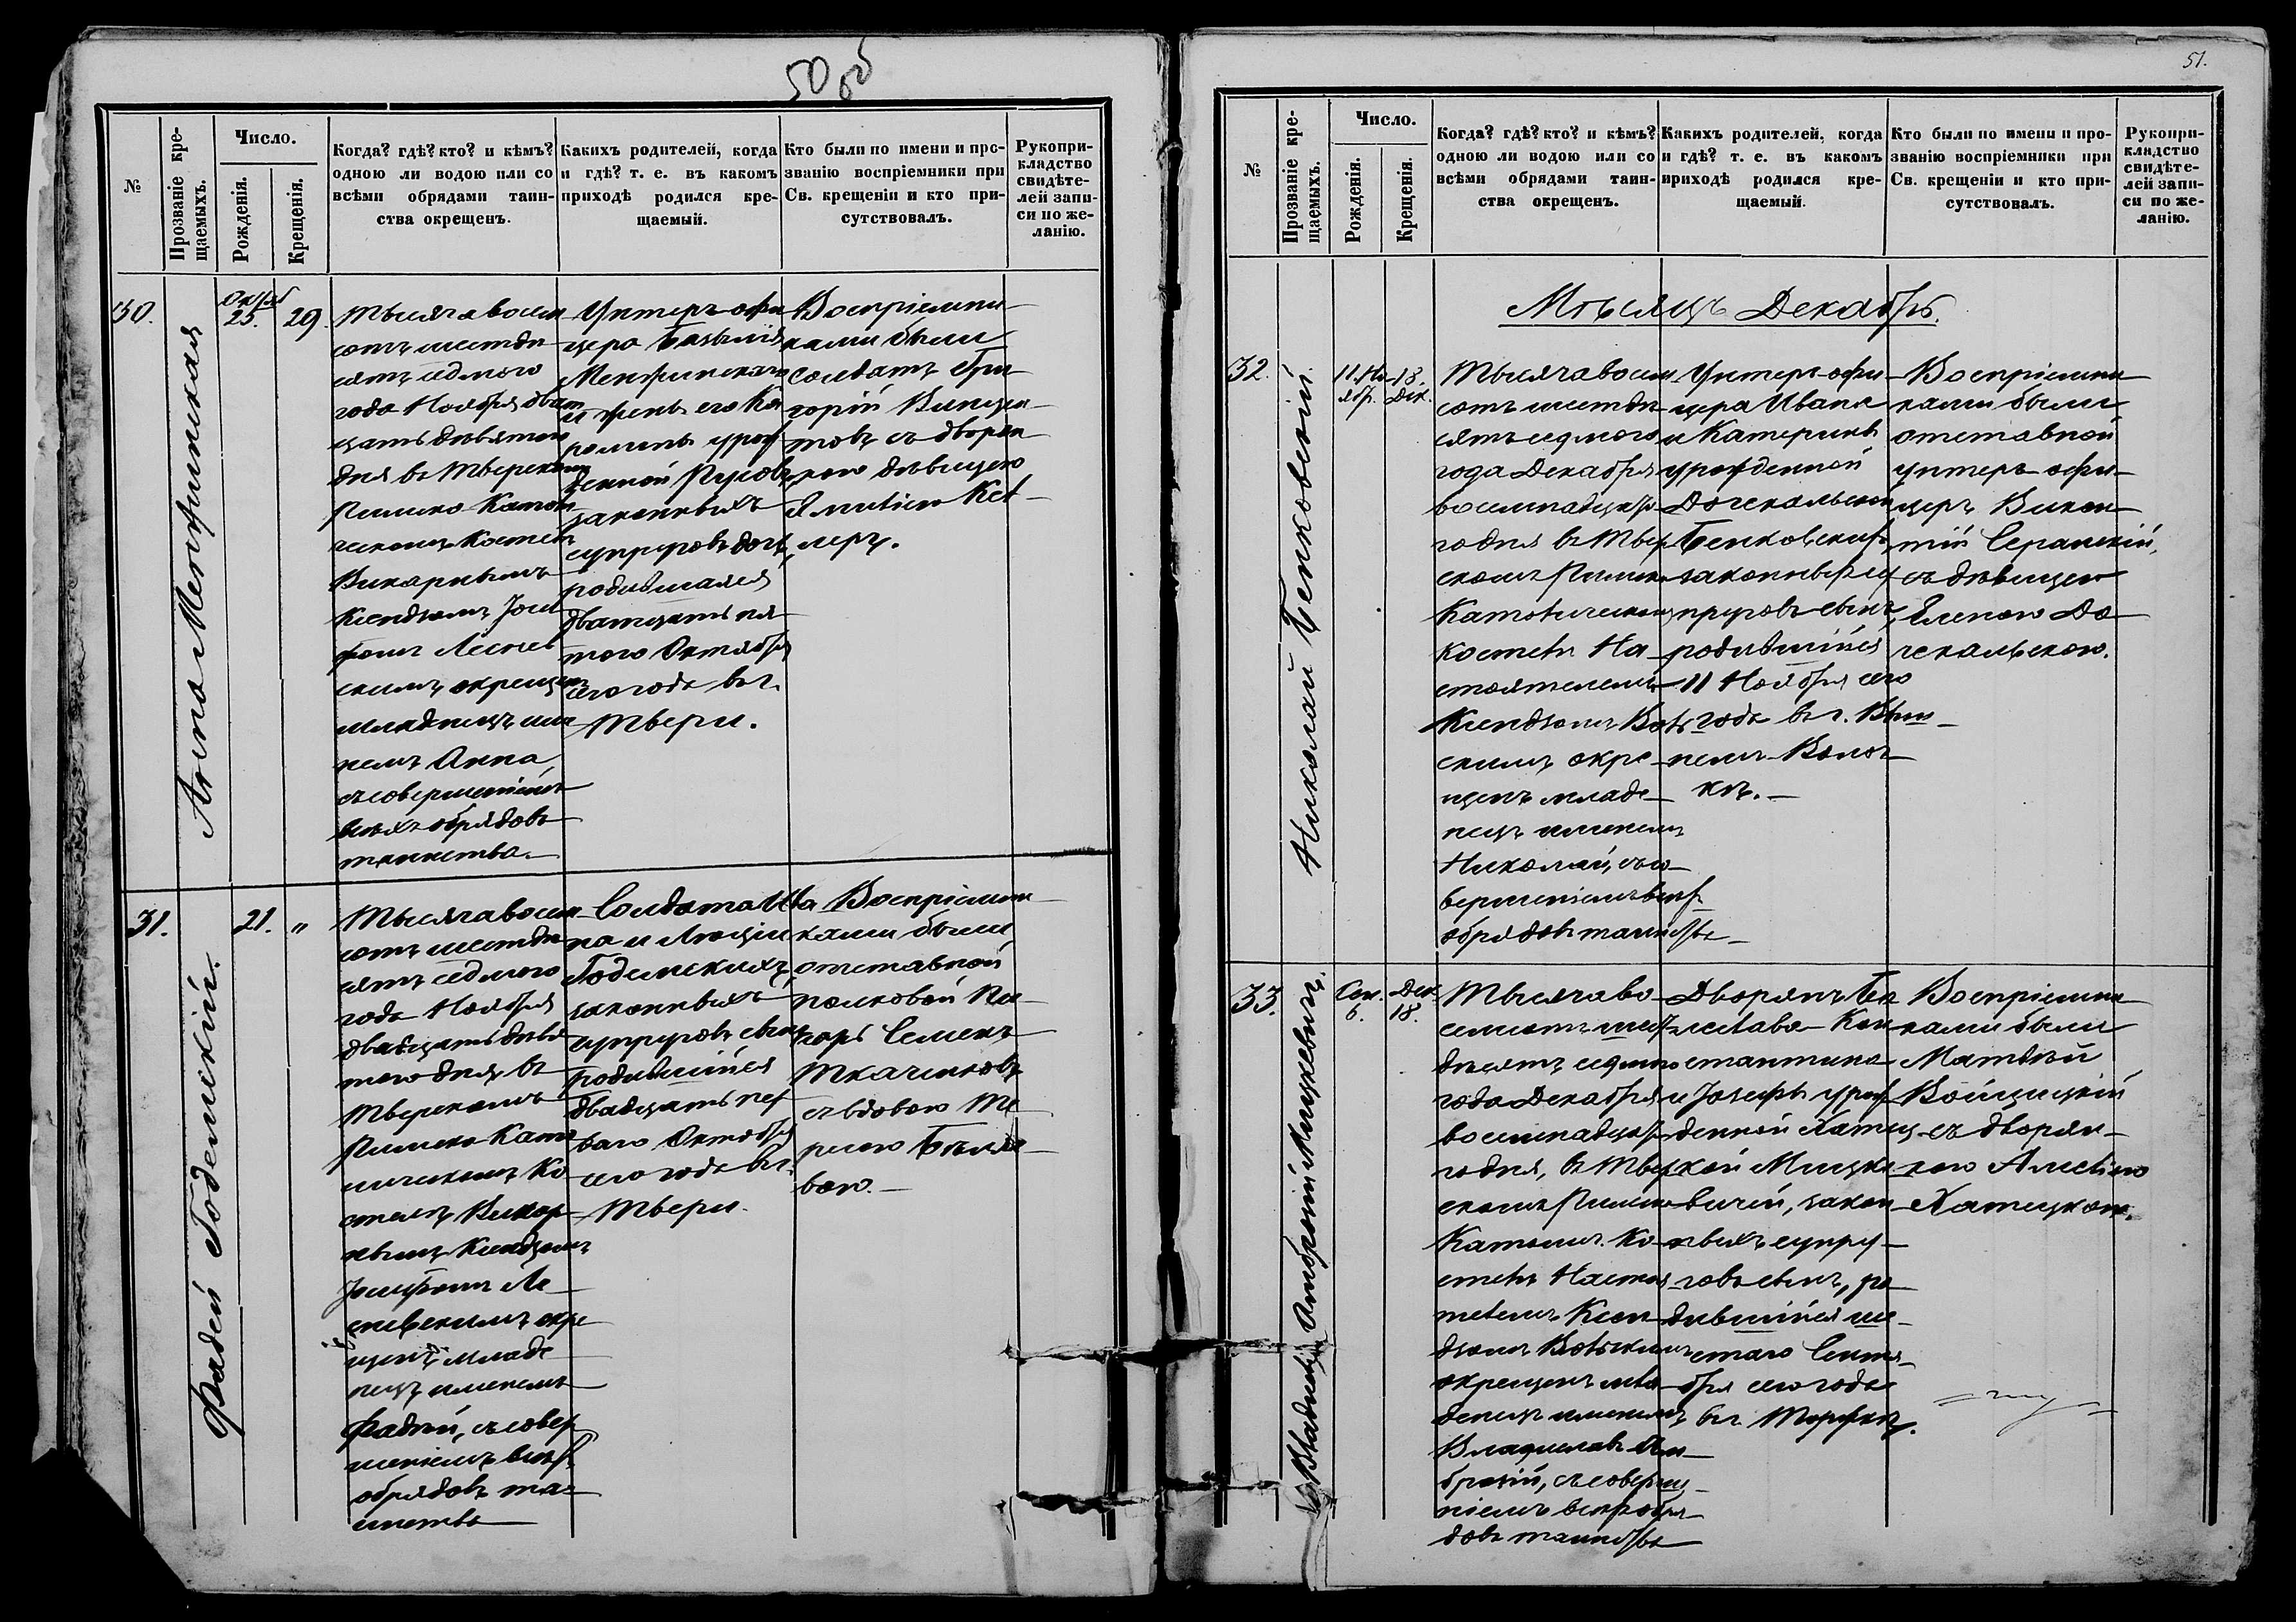 50 об
№
Прозваніе кре-
щаемыхъ.
Число.
Рожденія.
Крещенія.
Когда? гдѣ? кто? и кѣмъ?
одною ли водою или со
всѣми обрядами таин-
ства окрещенъ.
Какихъ родителей, когда
и гдѣ? т. е. въ какомъ
приходѣ родился кре-
щаемый.
Кто были по имени и про-
званію воспріемники при
Св. крещеніи и кто при-
сутствовалъ.
Рукопри-
кладство
свидѣте-
лей запи-
си по же-
ланію.
30.
Анна
Октяб
25.
29.
Тысяча восем
сотъ шестьде
сятъ седмого
года Ноября двад
цать девятого
дня въ Тверском
Римско Католи
ческомъ Костелѣ
Викарнымъ
Ксендзомъ Іоси
фомъ
скимъ окрещенъ
младенецъ име
немъ Анна,
съ совершеніемъ
всѣхъ обрядовъ
таинства.
Унтеръ-офи
цера
и жены его Ка
ролины урож
денной
законныхъ
супруговъ дочь,
родившаяся
двадцать пя
того Октября
сего года въ г.
Твери.
Воспріемни
ками были
солдатъ Гри
горій Викен
товъ съ дворян
кою дѣвицею
Эмиліею Кел
леръ.
31.
Фадей Годемскій.
21.
"
Тысяча восем
сотъ шестьде
сятъ седмого
года Ноября
двадцать девя
того дня, въ
Тверскомъ
Римско Като
лическомъ Ко
стелѣ Викар
нымъ Ксендзомъ
Іосифомъ
окре
щенъ младе
нецъ именемъ
Фадѣй, съ совер
шеніемъ всѣх
обрядовъ та
инства
Солдата Ива
на и Люціи
Годемскихъ,
законныхъ
супруговъ сынъ,
родившійся
двадцать пер
ваго Октября
сего года въ г.
Твери.
Воспріемни
ками были
отставной
полковой пи
сарь Семенъ
Ткачиковъ
съ вдовою Те
резою Бѣляе
вою.
51.
№
Прозваніе кре-
щаемыхъ.
Число.
Рожденія.
Крещенія.
Когда? гдѣ? кто? и кѣмъ?
одною ли водою или со
всѣми обрядами таин-
ства окрещенъ.
Какихъ родителей, когда
и гдѣ? т. е. въ какомъ
приходѣ родился кре-
щаемый.
Кто были по имени и про-
званію воспріемники при
Св. крещеніи и кто при-
сутствовалъ.
Рукопри-
кладство
свидѣте-
лей запи-
си по же-
ланію.
Мѣсяцъ Декабрь.
32.
Николай Бенковскій.
11. Но
ябр.
18.
Дек.
Тысяча восем
сотъ шестьде
сятъ седмого
года Декабря
восемнадцата
го дня въ Твер
скомъ Римско
Католическомъ
костелѣ На
стоятелемъ
Ксендзомъ
окре
щенъ младе
нецъ именемъ
Николай, съ со
вершеніемъ всѣх
обрядовъ таинства
Унтеръ-офи
цера Ивана
и Катерины
урожденной
Дочекальской
Бенковскихъ,
законныхъ су
пруговъ сынъ,
родившійся
11 Ноября сего
года въ г. Выш
немъ-Волоч
кѣ.
Воспріемни
ками были
отставной
унтеръ-офи
церъ Викен
тій
съ дѣвицею
Еленою До
чекальскою.
33.
Владиславъ Амброзій Мицкевичъ.
Сен.
6.
Дек.
18.
Тысяча во
семьсотъ шесть
десятъ седмого
года Декабря
восемнадцата
го дня, въ Твер
скомъ Римско
Католич. Ко
стелѣ Настоя
телемъ Ксен
дзомъ
окрещенъ мла
денецъ именемъ
Владиславъ Ам
брозій, съ соверше
ніемъ всѣхъ обря
довъ таинства
Дворянъ Бо
леслава Кон
стантина
и Іозефы урож
денной Хатец
кой Мицке
вичей, закон
ныхъ супру
говъ сынъ, ро
дившійся ше
стаго Сентя
бря сего года
въ г. Торжкѣ.
Воспріемни
ками были
Матвѣй
Войцицкій
съ дворян
кою
Хатецкою.